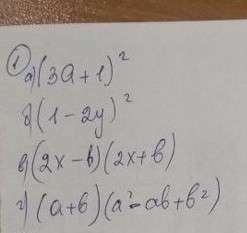 ① а) (3a+1)²
б) (1-2y)²
в) (2x-b)(2x+b)
г) (a+b)(a²-ab+b²)